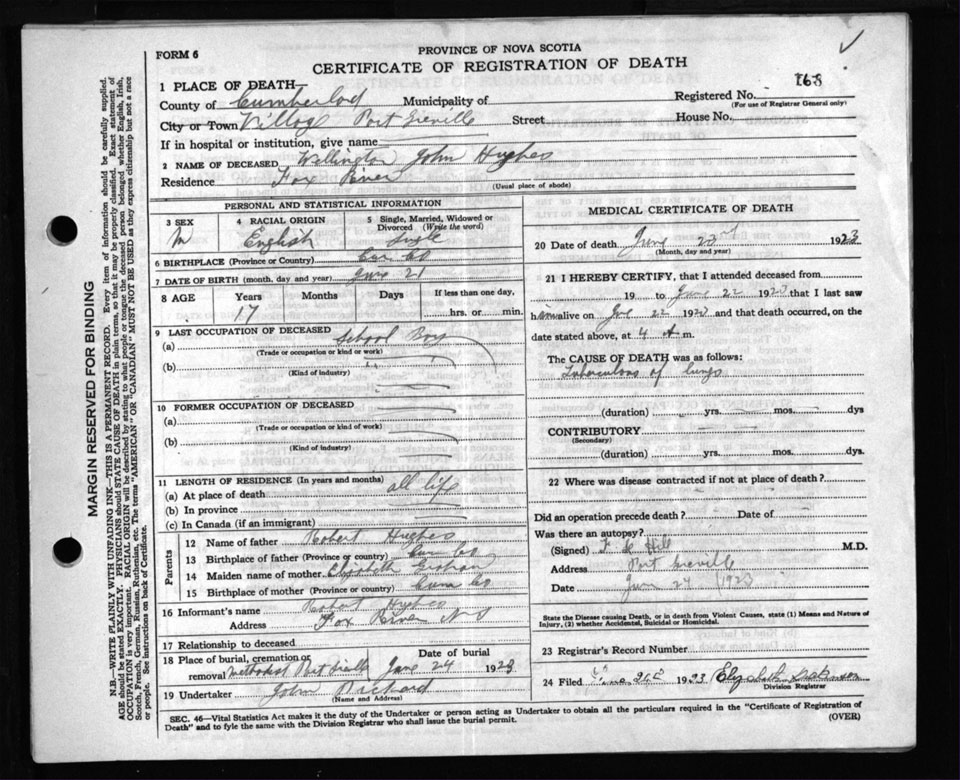 FORM 6
PROVINCE OF NOVA SCOTIA
CERTIFICATE OF REGISTRATION OF DEATH
1 PLACE OF DEATH
Registered No. 168
(For use of Registrar General only)
County of Cumberlod Municipality of
City or Town Village Port Greville Street House No.
If in hospital or institution, give name
2 NAME OF DECEASED Wellington John Hughes
Residence Fox River
(Usual place of abode)
PERSONAL AND STATISTICAL INFORMATION
3 SEX 4 RACIAL ORIGIN 5 Single, Married, Widowed or Divorced (Write the word)
M English Single
6 BIRTHPLACE (Province or Country) Cum Co
7 DATE OF BIRTH (month, day and year) June 21
8 AGE Years Months Days If less than one day,
17 hrs. or min.
9 LAST OCCUPATION OF DECEASED
(a) School Boy
(Trade or occupation or kind or work)
(b)
(Kind of industry)
10 FORMER OCCUPATION OF DECEASED
(a)
(Trade or occupation or kind of work)
(b)
(Kind of industry)
11 LENGTH OF RESIDENCE (In years and months)
(a) At place of death all life
(b) In province
(c) In Canada (if an immigrant)
Parents
12 Name of father Robert Hughes
13 Birthplace of father (Province or country) Cum Co
14 Maiden name of mother Elizabeth
15 Birthplace of mother (Province or country) Cum Co
16 Informant's name Robert Hughes
Address Fox River N S
17 Relationship to deceased
18 Place of burial, cremation or removal Methodist Port Greville Date of burial June 24 1923
19 Undertaker John Prichard
(Name and Address)
MEDICAL CERTIFICATE OF DEATH
20 Date of death June 23rd 1923
(Month, day and year)
21 I HEREBY CERTIFY, that I attended deceased from
19 to June 22 1923 that I last saw
him alive on 22 1923 and that death occurred, on
date stated above, at 4 A m.
The CAUSE OF DEATH was as follows:
Tuberculous of lungs
(duration) yrs. mos. dys
CONTRIBUTORY
(Secondary)
(duration) yrs. mos. dys.
22 Where was disease contracted if not at place of death?
Did an operation precede death? Date of
Was there an autopsy?
(Signed) Hill M.D.
Address Port Greville
Date June 24 1923
State the Disease causing Death, or in death from Violent Causes, state (1) Means and Nature of Injury, (2) whether Accidental, Suicidal or Homicidal.
23 Registrar's Record Number
24 Filed June 1923 Elizabeth Dickinson
Division Registrar
SEC. 46—Vital Statistics Act makes it the duty of the Undertaker or person acting as Undertaker to obtain all the particulars required in the "Certificate of Registration of
Death" and to fyle the same with the Division Registrar who shall issue the burial permit.
(OVER)
MARGIN RESERVED FOR BINDING
N.B.—WRITE PLAINLY WITH UNFADING INK—THIS IS A PERMANENT RECORD. Every item of information should be carefully supplied.
AGE should be stated EXACTLY. PHYSICIANS should STATE CAUSE OF DEATH in plain terms, so that it may be properly classified. Exact statement of
OCCUPATION is very important. RACIAL ORIGIN will be described by stating to what people or tongue the deceased person belonged whether English, Irish,
Scotch, French, German, Russian, Ruthenian, etc. The terms "AMERICAN" OR "CANADIAN" MUST NOT BE USED as they express citizenship but not a race
or people. See instructions on back of Certificate.